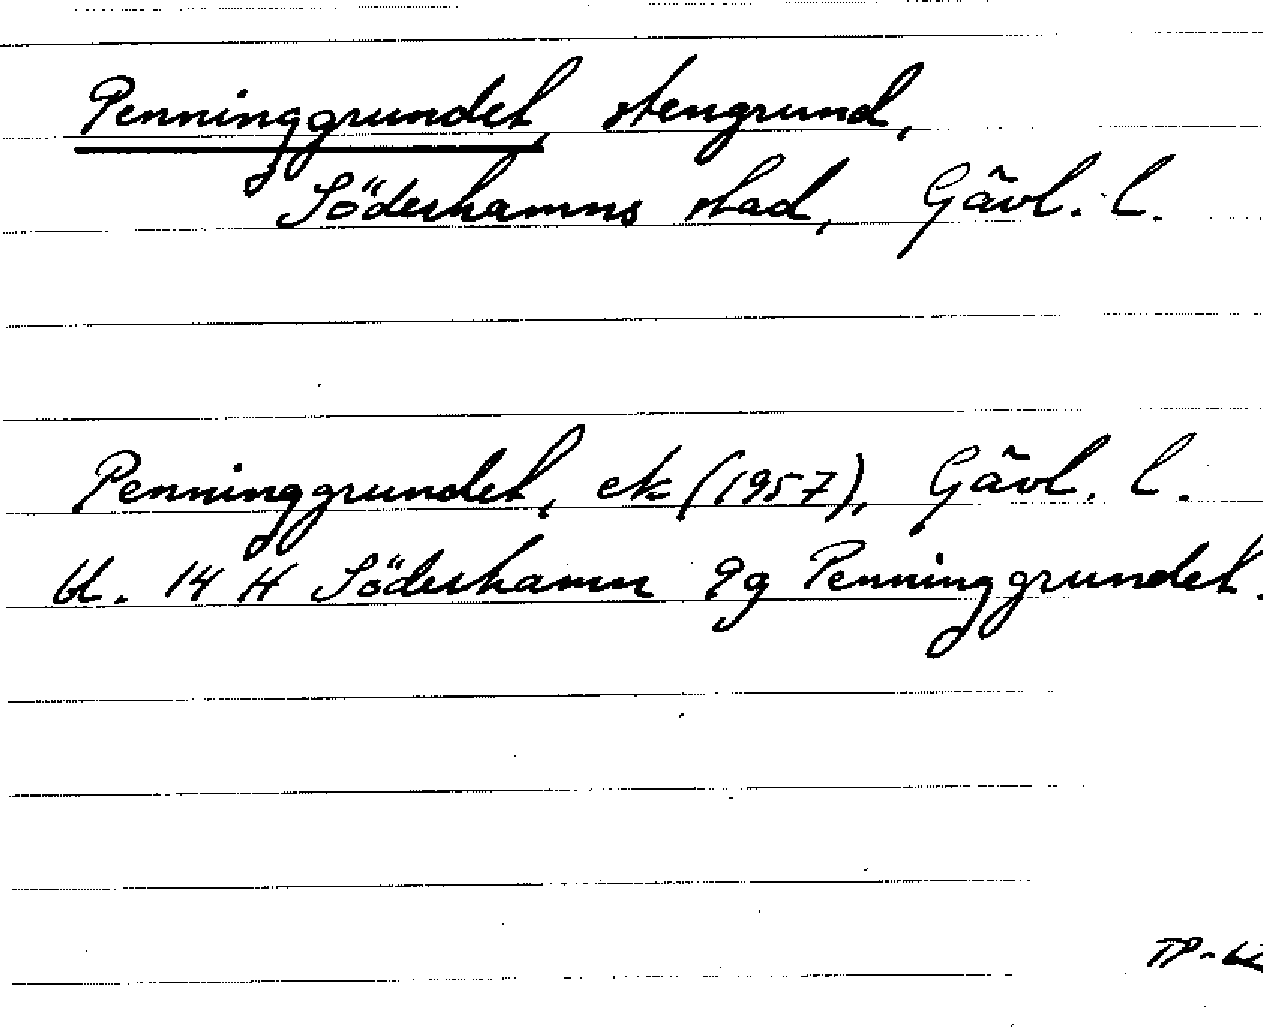 Penninggrundet, stengrund,
Söderhamns stad, Gävl. l.
Penninggrundet, ek (1957), Gävl. l.
bl. 14 H Söderhamn 9g Penninggrundet.